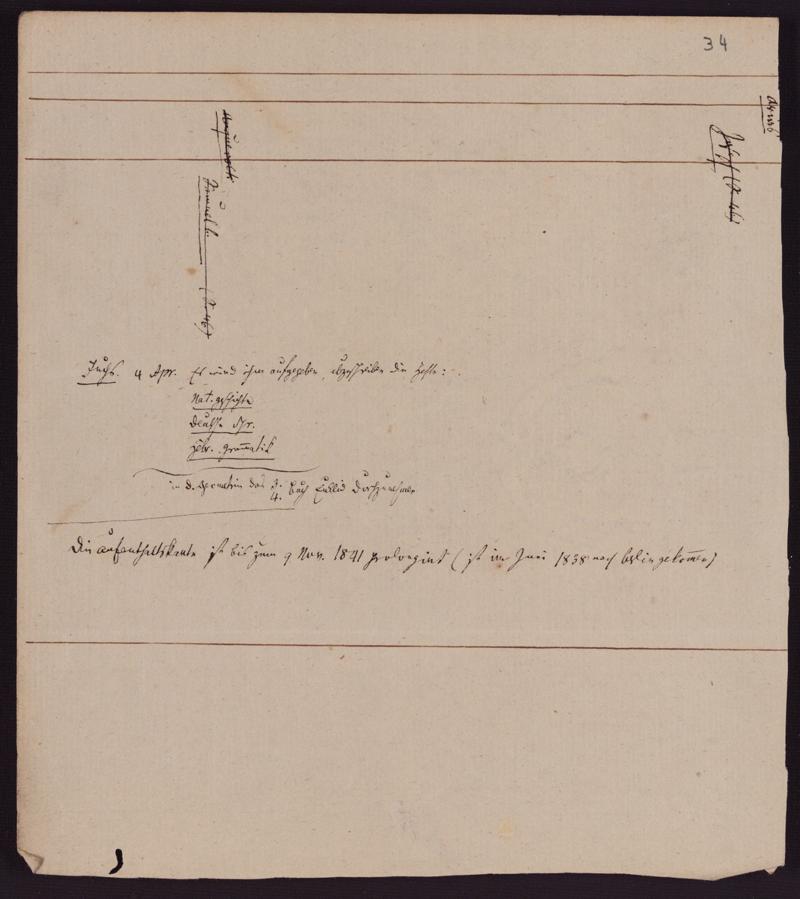 34
Fuchs. 4 Apr. Es wird ihm aufgegeben, abzuschreiben die Hefte:
Nat. geschichte
Deutsche Spr.
Hebr. Gram̅atik
in d. Geometrie das 3. 4. Buch Euklid durchzunehmen
Die Aufenthaltskarte ist bis zum 9 Nov. 1841 prolongirt (ist im Juni 1838 nach Berlin gekom̅en)